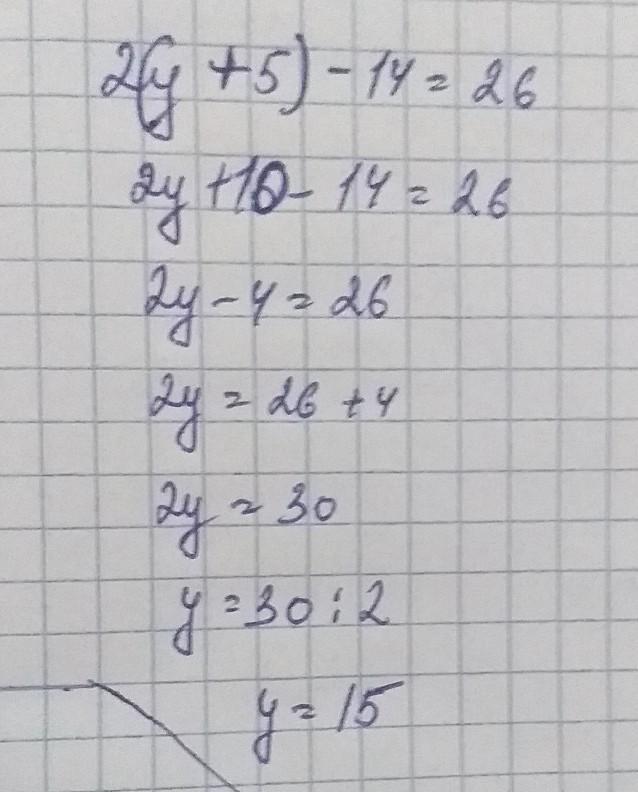 2(y + 5) - 14 = 26
2y + 10 - 14 = 26
2y - 4 = 26
2y = 26 + 4
2y = 30
y = 30 : 2
y = 15